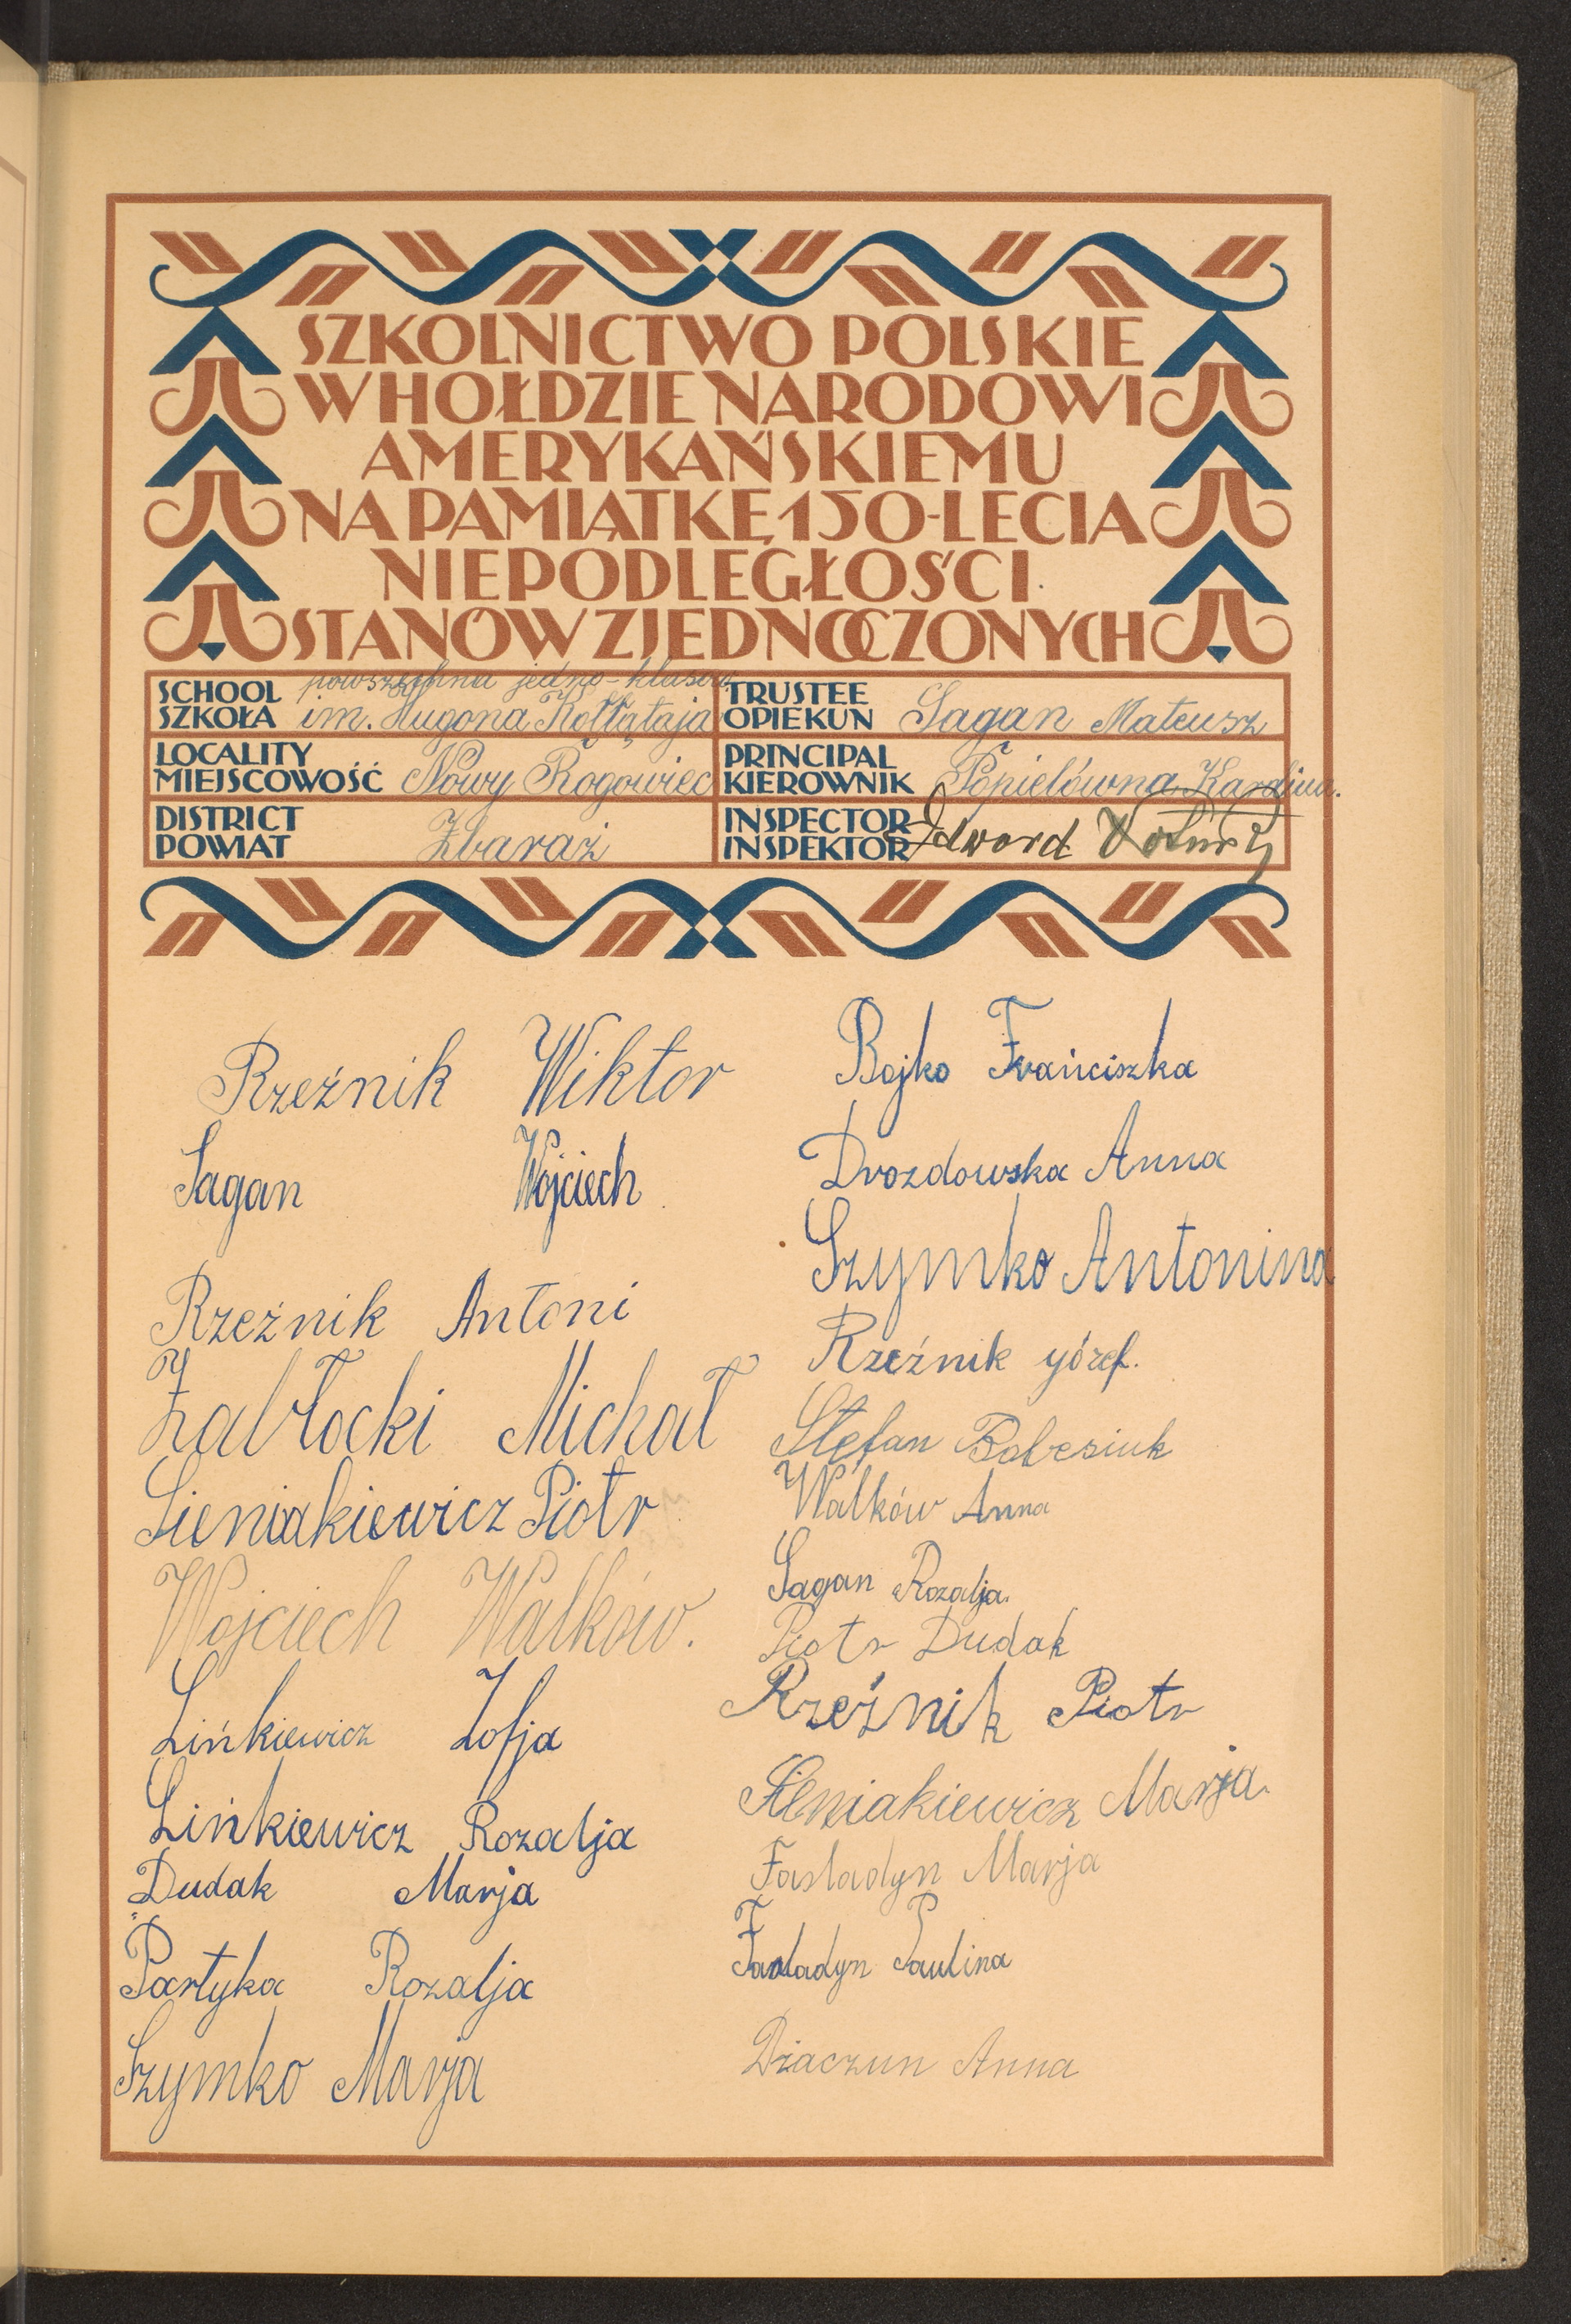 SZKOLNICTWO POLSKIE
W HOŁDZIE NARODOWI
AMERYKAŃSKIEMU
NA PAMIĄTKĘ 150-LECIA
NIEPODLEGŁOŚCI
STANÓW ZJEDNOCZONYCH
SCHOOL
SZKOŁA
powszechna jedno-klasow
im. Hugona Kołłątaja
TRUSTEE
OPIEKUN
Sagan Mateusz
LOCALITY
MIEJSCOWOŚĆ
Nowy Rogowiec
PRINCIPAL
KIEROWNIK
Popielówna Karolina.
DISTRICT
POWIAT
Zbaraż
INSPECTOR
INSPEKTOR
Edward
Rzeźnik Wiktor
Sagan Wojciech
Rzeźnik Antoni
Zabłocki Michał
Sieniakiewicz Piotr
Wojciech Walków.
Lińkiewicz Zofja
Lińkiewicz Rozalja
Dudak Marja
Partyka Rozalja
Szymko Marja
Bojko Frańciszka
Drozdowska Anna
Szymko Antonina
Rzeźnik józef.
Stefan
Walków Anna
Sagan Rozalja.
Piotr Dudak
Rzeźnik Piotr
Sieniakiewicz Marja.
Fasładyn Marja
Fasładyn Paulina
Dziaczun Anna